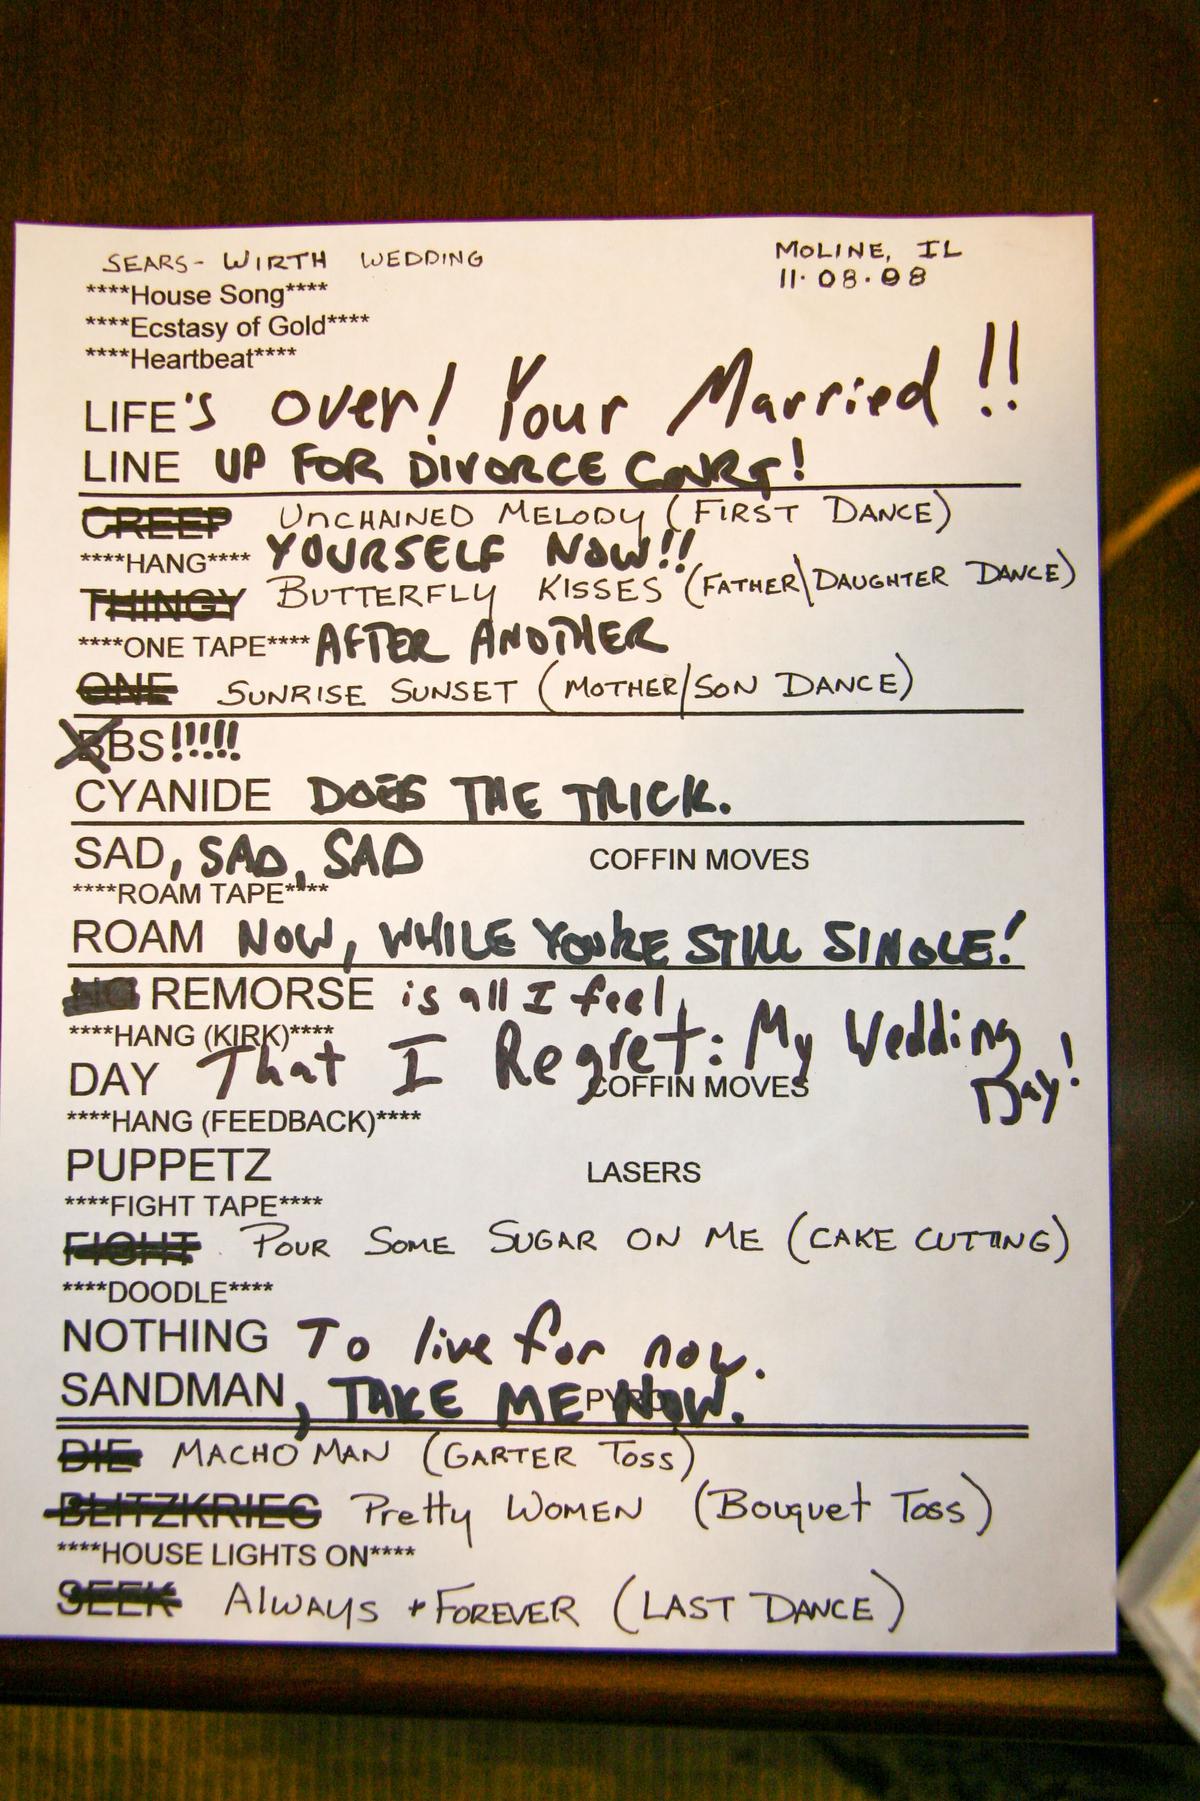 SEARS- WIRTH WEDDING MOLINE, IL
11·08·08
****House Song****
****Ecstasy of Gold****
****Heartbeat****
LIFE'S over! Your Married!!
LINE UP FOR DIVORCE COURT!
CREEP UNCHAINED MELODY (FIRST DANCE)
****HANG**** YOURSELF NOW!!
THINGY BUTTERFLY KISSES (FATHER\DAUGHTER DANCE)
****ONE TAPE**** AFTER ANOTHER
ONE SUNRISE SUNSET (MOTHER/SON DANCE)
BBS!!!!!!
CYANIDE DOES THE TRICK.
SAD, SAD, SAD COFFIN MOVES
****ROAM TAPE****
ROAM NOW, WHILE YOU'RE STILL SINGLE!
NO REMORSE is all I feel
****HANG (KIRK)****
DAY That I Regret: My Wedding Day!
COFFIN MOVES
****HANG (FEEDBACK)****
PUPPETZ LASERS
****FIGHT TAPE****
FIGHT POUR SOME SUGAR ON ME (CAKE CUTTING)
****DOODLE****
NOTHING To live for now.
SANDMAN, TAKE ME NOW. PYRO
DIE MACHO MAN (GARTER TOSS)
BLITZKRIEG Pretty WOMEN (Bouquet Toss)
****HOUSE LIGHTS ON****
SEEK ALWAYS + FOREVER (LAST DANCE)